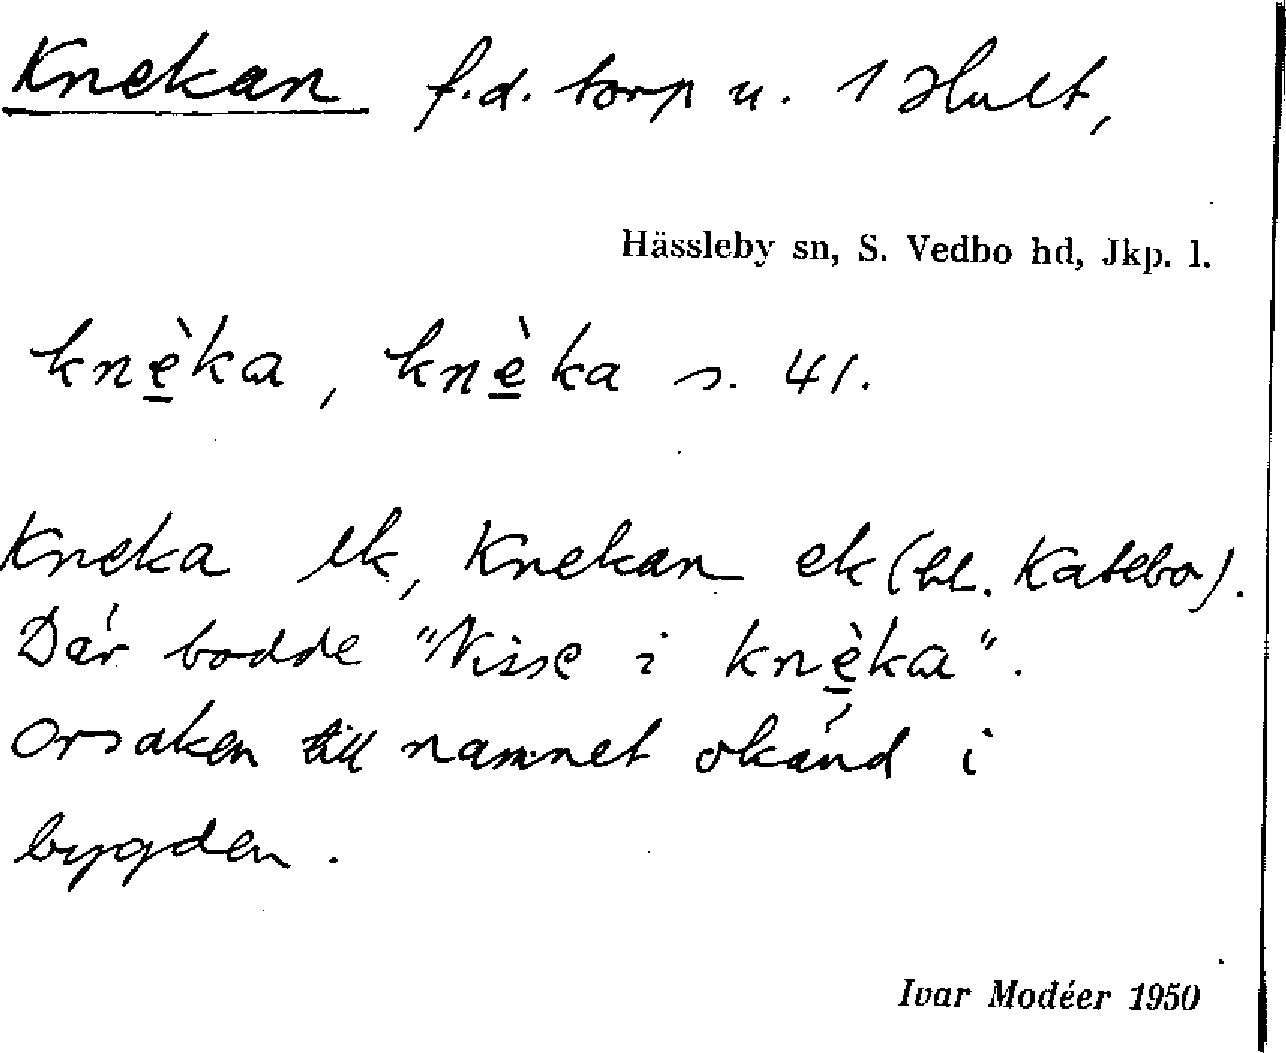 Knekan f.d. torp u. 1 Hult,
Hässleby sn, S. Vedbo hd, Jkp. l.
knè̱ka, knè̱ka s. 41.
Kneka ek, Knekan ek (bl. Katebo).
Där bodde "Nisse i knè̱ka".
Orsaken till namnet okänd i
bygden.
Ivar Modéer 1950